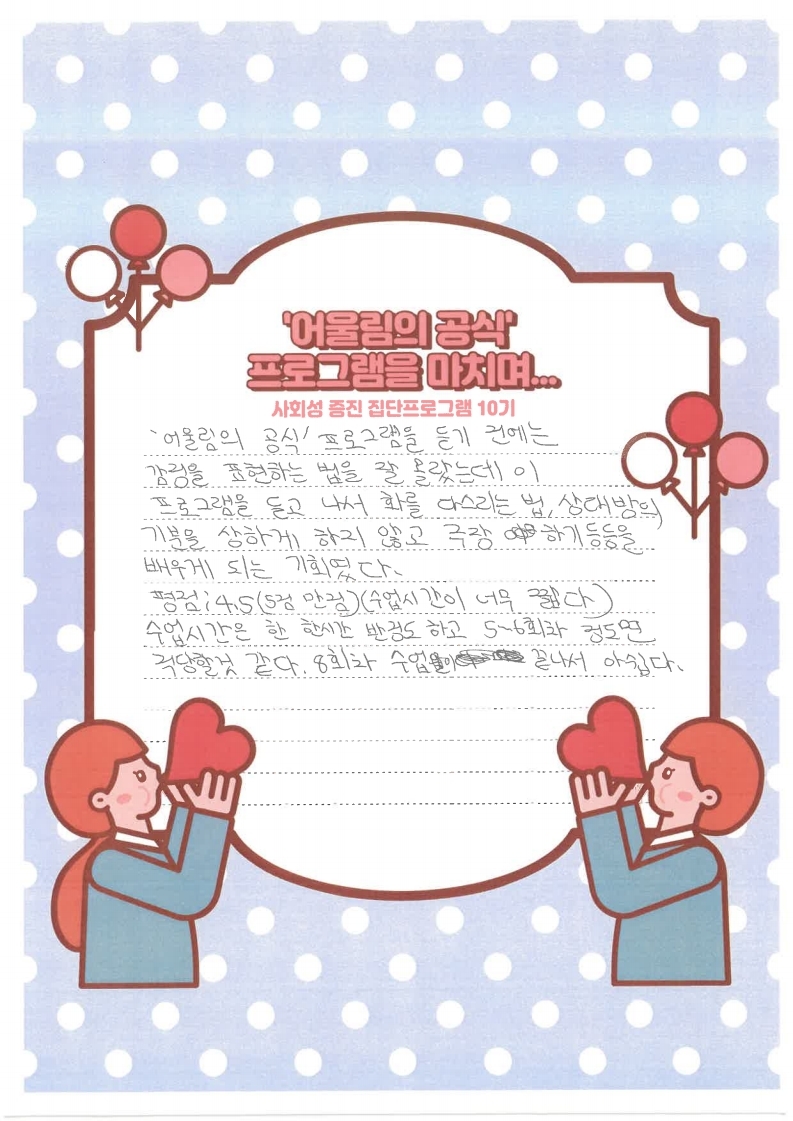 '어울림의 공식'
프로그램을 마치며...
사회성 증진 집단프로그램 10기
'어울림의 공식' 프로그램을 듣기 전에는
감정을 표현하는 법을 잘 몰랐는데 이
프로그램을 듣고 나서 화를 다스리는 법, 상대방의
기분을 상하게 하지 않고 하기등등을
배우게 되는 기회였다.
평점:4.5(5점 만점)(수업시간이 너무 짧다)
수업시간은 한 한시간 반정도 하고 5~6회차 정도면
적당할것 같다. 8회차 수업 끝나서 아쉽다.